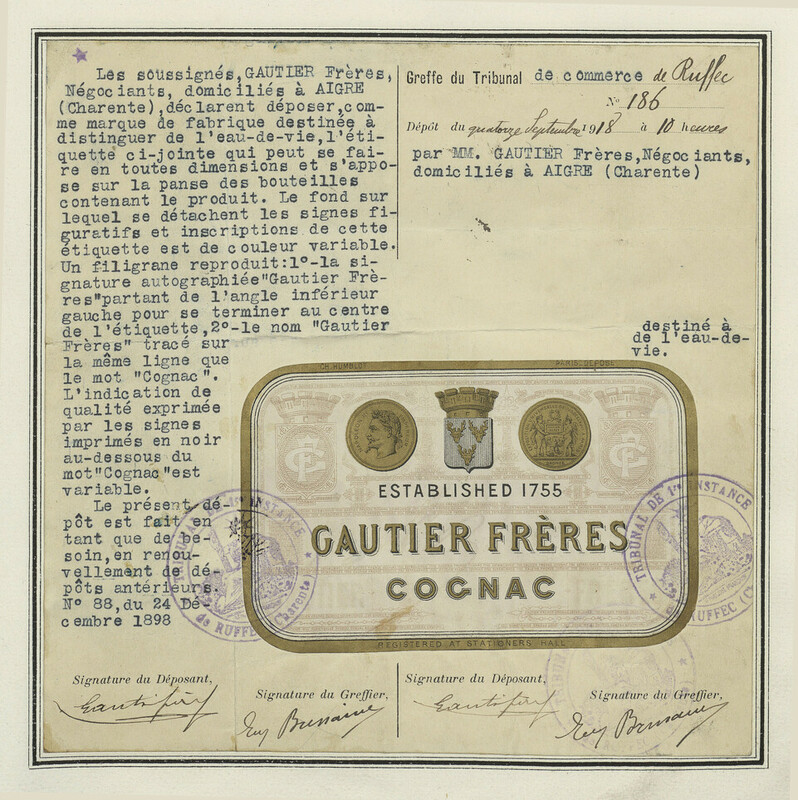 Les soussignés,GAUTIER Frères,
Négociants, domiciliés à AIGRE
(Charente),déclarent déposer,com-
me marque de fabrique destinée à
distinguer de l'eau-de-vie,l'éti-
quette ci-jointe qui peut se fai-
re en toutes dimensions et s'appo-
se sur la panse des bouteilles
contenant le produit. Le fond sur
lequel se détachent les signes fi-
guratifs et inscriptions de cette
étiquette est de couleur variable.
Un filigrane reproduit:1°-la si-
gnature autographiée"Gautier Frè-
res"partant de l'angle inférieur
gauche pour se terminer au centre
de l'étiquette,2°-le nom "Gautier
Frères" tracé sur
la même ligne que
le mot "Cognac".
L'indication de
qualité exprimée
par les signes
imprimés en noir
au-dessous du
mot"Cognac"est
variable.
Le présent dé-
pôt est fait en
tant que de be-
soin,en renou-
vellement de dé-
pôts antérieurs.
N° 88,du 24 Dé-
cembre 1898
Greffe du Tribunal de commerce de Ruffec
N° 186
Dépôt du quatorze Septembre 1918 à 10 heures
par MM. GAUTIER Frères,Négociants,
domiciliés à AIGRE (Charente)
destiné à
de l'eau-de-
vie.
CH. HUMBLOT
PARIS. DEPOSÉ
ESTABLISHED 1755
GAUTIER FRÈRES
COGNAC
REGISTERED AT STATIONERS HALL
TRIBUNAL DE 1re INSTANCE
de RUFFEC Charente
TRIBUNAL DE 1re INSTANCE
RUFFEC
Signature du Déposant,
Signature du Greffier,
Signature du Déposant,
Signature du Greffier,